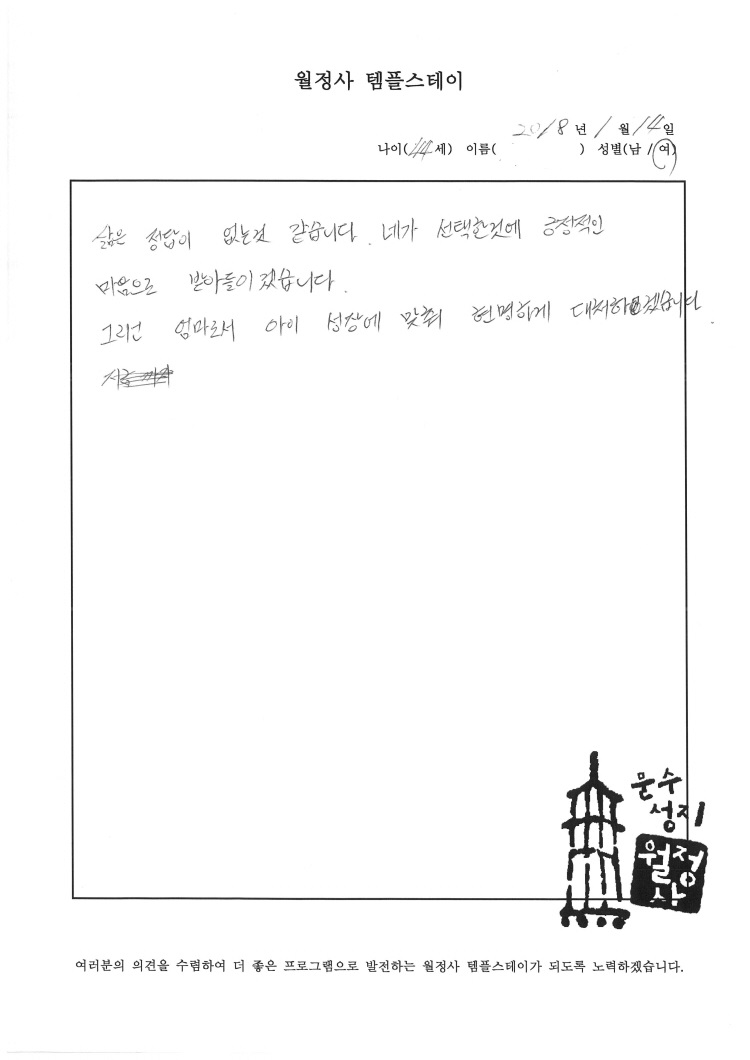 월정사 템플스테이
2018 년 1 월 14 일
나이(44 세) 이름( ) 성별(남 / 여)
삶은 정답이 없는것 같습니다. 네가 선택한것에 긍정적인
마음으로 받아들이겠습니다.
그리고 엄마로서 아이 성장에 맞춰 현명하게 대처하겠습니다.
문수
성지
월정
사
여러분의 의견을 수렴하여 더 좋은 프로그램으로 발전하는 월정사 템플스테이가 되도록 노력하겠습니다.